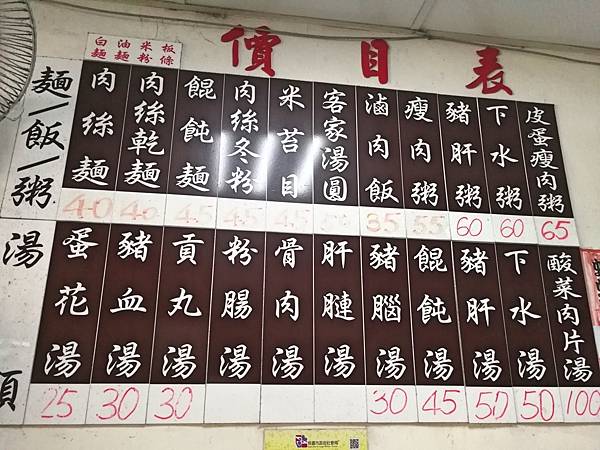 價目表
白麵 油麵 米粉 板條
麵/飯/粥
肉絲麵 40
肉絲乾麵 40
餛飩麵 45
肉絲冬粉 45
米苔目 45
客家湯圓
滷肉飯 35
瘦肉粥 55
豬肝粥 60
下水粥 60
皮蛋瘦肉粥 65
湯類
蛋花湯 25
豬血湯 30
貢丸湯 30
粉腸湯
骨肉湯
肝腱湯
豬腦湯 30
餛飩湯 45
豬肝湯 50
下水湯 50
酸菜肉片湯 100